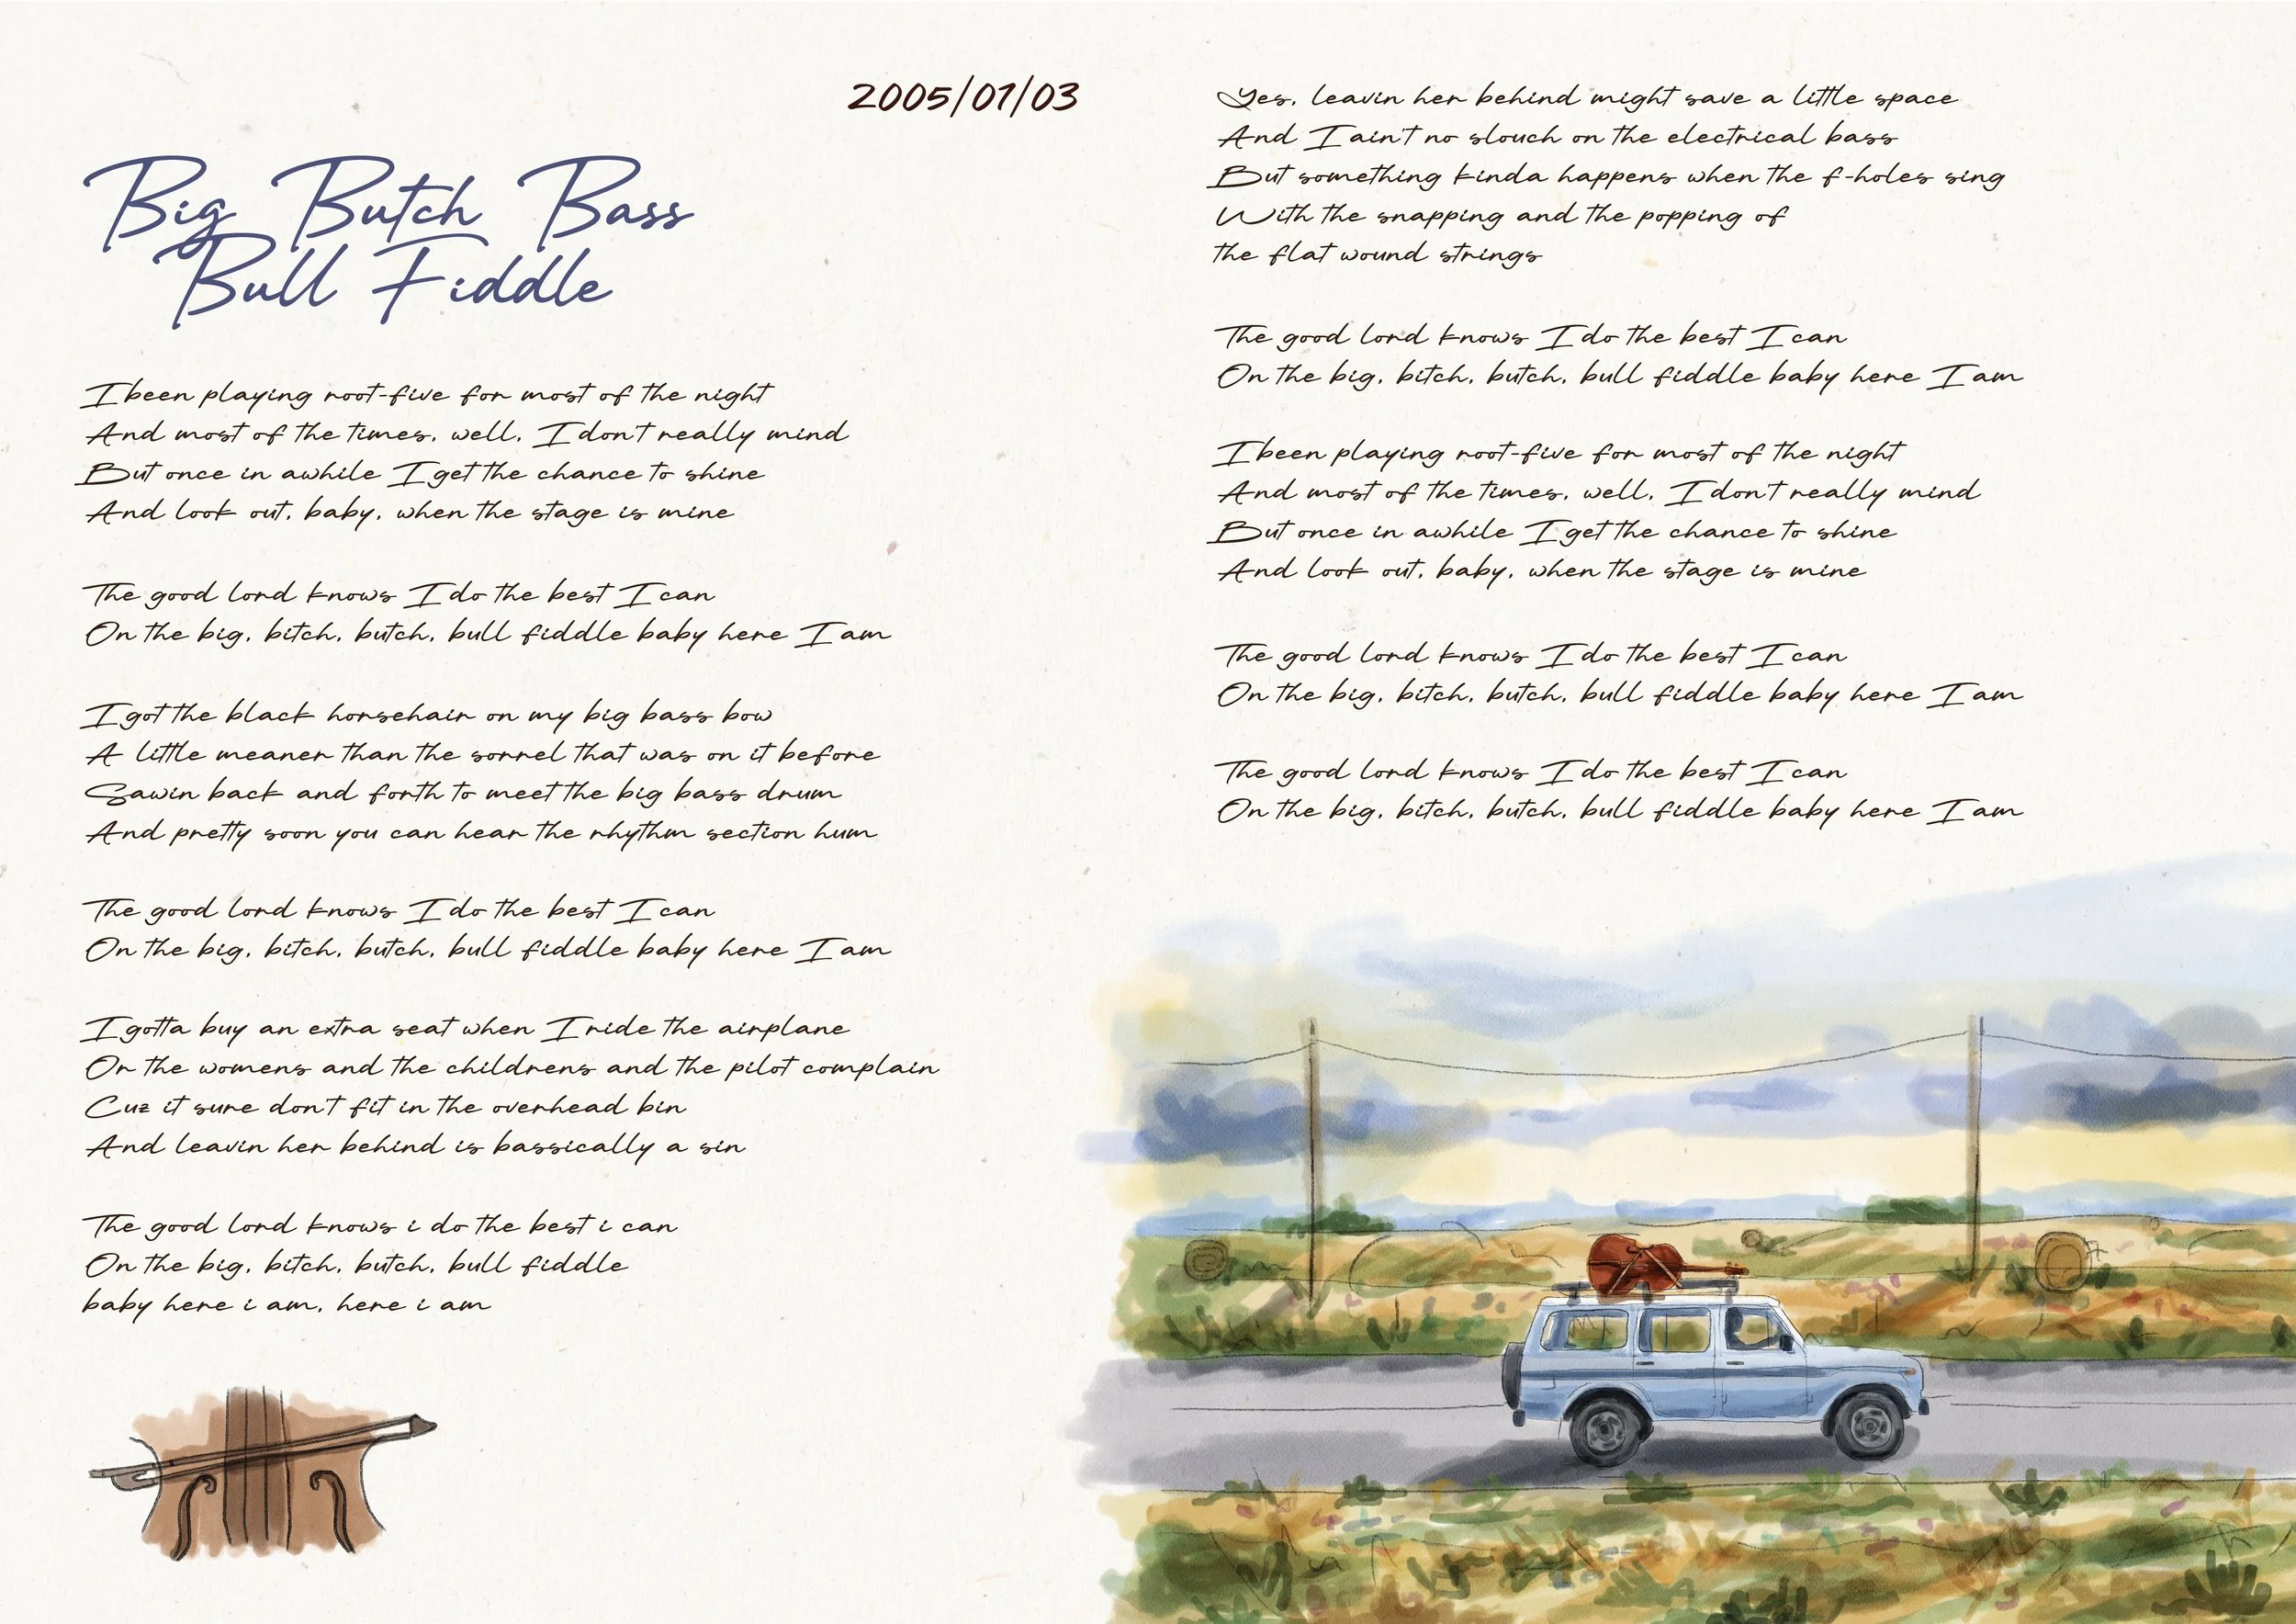 2005/07/03
Big Butch Bass
Bull Fiddle
I been playing root-five for most of the night
And most of the times, well, I don't really mind
But once in awhile I get the chance to shine
And look out, baby, when the stage is mine
The good lord knows I do the best I can
On the big, bitch, butch, bull fiddle baby here I am
I got the black horsehair on my big bass bow
A little meaner than the sorrel that was on it before
Sawin back and forth to meet the big bass drum
And pretty soon you can hear the rhythm section hum
The good lord knows I do the best I can
On the big, bitch, butch, bull fiddle baby here I am
I gotta buy an extra seat when I ride the airplane
Or the womens and the childrens and the pilot complain
Cuz it sure don't fit in the overhead bin
And leavin her behind is bassically a sin
The good lord knows i do the best i can
On the big, bitch, butch, bull fiddle
baby here i am, here i am
Yes, leavin her behind might save a little space
And I ain't no slouch on the electrical bass
But something kinda happens when the f-holes sing
With the snapping and the popping of
the flat wound strings
The good lord knows I do the best I can
On the big, bitch, butch, bull fiddle baby here I am
I been playing root-five for most of the night
And most of the times, well, I don't really mind
But once in awhile I get the chance to shine
And look out, baby, when the stage is mine
The good lord knows I do the best I can
On the big, bitch, butch, bull fiddle baby here I am
The good lord knows I do the best I can
On the big, bitch, butch, bull fiddle baby here I am